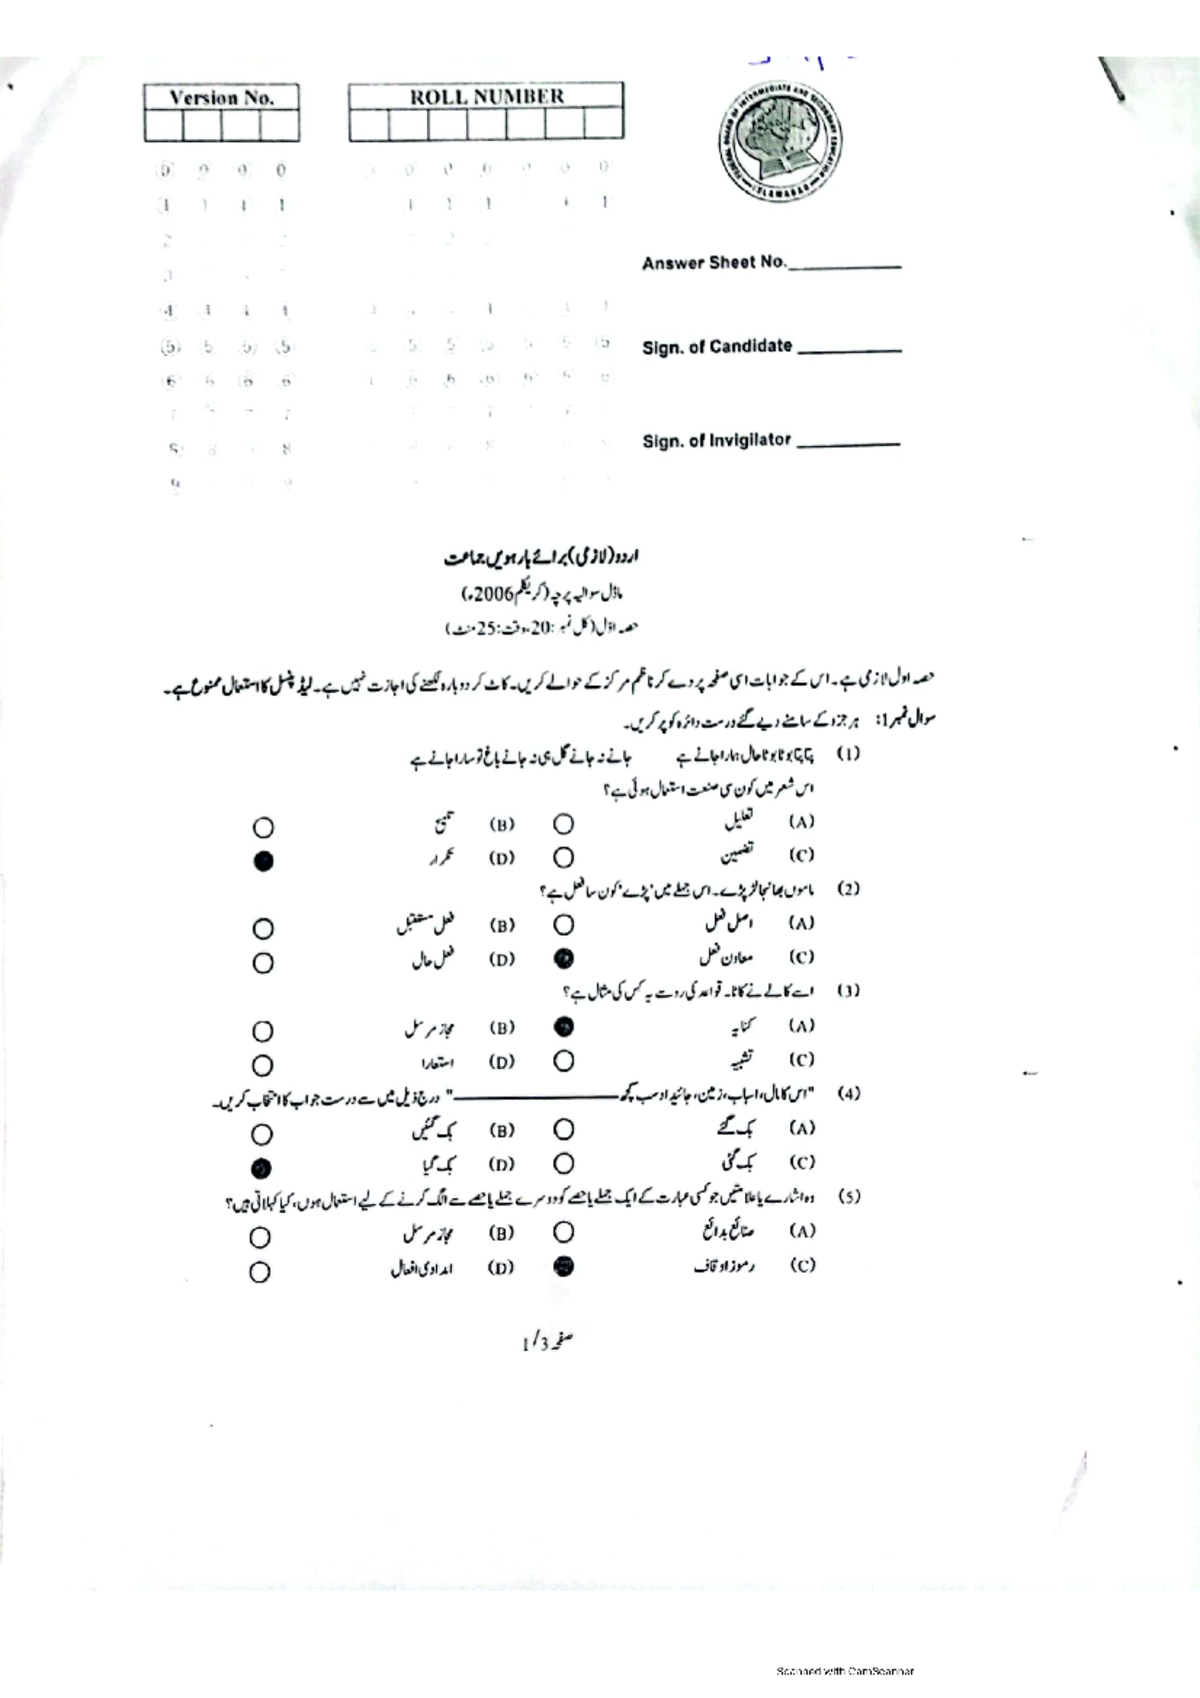 Version No.
ROLL NUMBER
FEDERAL BOARD OF INTERMEDIATE AND SECONDARY EDUCATION ISLAMABAD
Answer Sheet No.
Sign. of Candidate
Sign. of Invigilator
اردو (لازمی) برائے بارہویں جماعت
ماڈل سوالیہ پرچہ (کریکلم 2006ء)
حصہ اوّل (کل نمبر: 20، وقت: 25 منٹ)
حصہ اول لازمی ہے۔ اس کے جوابات اسی صفحہ پر دے کر ناظم مرکز کے حوالے کریں۔ کاٹ کر دوبارہ لکھنے کی اجازت نہیں ہے۔ لیڈ پنسل کا استعمال ممنوع ہے۔
سوال نمبر 1: ہر جزو کے سامنے دیے گئے درست دائرہ کو پر کریں۔
(1) پتا پتا بوٹا بوٹا حال ہمارا جانے ہے جانے نہ جانے گل ہی نہ جانے باغ تو سارا جانے ہے
اس شعر میں کون سی صنعت استعمال ہوئی ہے؟
(A) تعلیل (B) تلمیح
(C) تضمین (D) تکرار
(2) ماموں بھانجا لڑ پڑے۔ اس جملے میں 'پڑے' کون سا فعل ہے؟
(A) اصل فعل (B) فعل مستقبل
(C) معاون فعل (D) فعل حال
(3) اسے کالے نے کاٹا۔ قواعد کی رو سے یہ کس کی مثال ہے؟
(A) کنایہ (B) مجاز مرسل
(C) تشبیہ (D) استعارا
(4) "اس کا مال، اسباب، زمین، جائیداد سب کچھ ـــــــــ" درج ذیل میں سے درست جواب کا انتخاب کریں۔
(A) بک گئے (B) بک گئیں
(C) بک گئی (D) بک گیا
(5) وہ اشارے یا علامتیں جو کسی عبارت کے ایک جملے یا حصے کو دوسرے جملے یا حصے سے الگ کرنے کے لیے استعمال ہوں، کیا کہلاتی ہیں؟
(A) صنائع بدائع (B) مجاز مرسل
(C) رموز اوقاف (D) امدادی افعال
صفحہ 1/3
Scanned with CamScanner